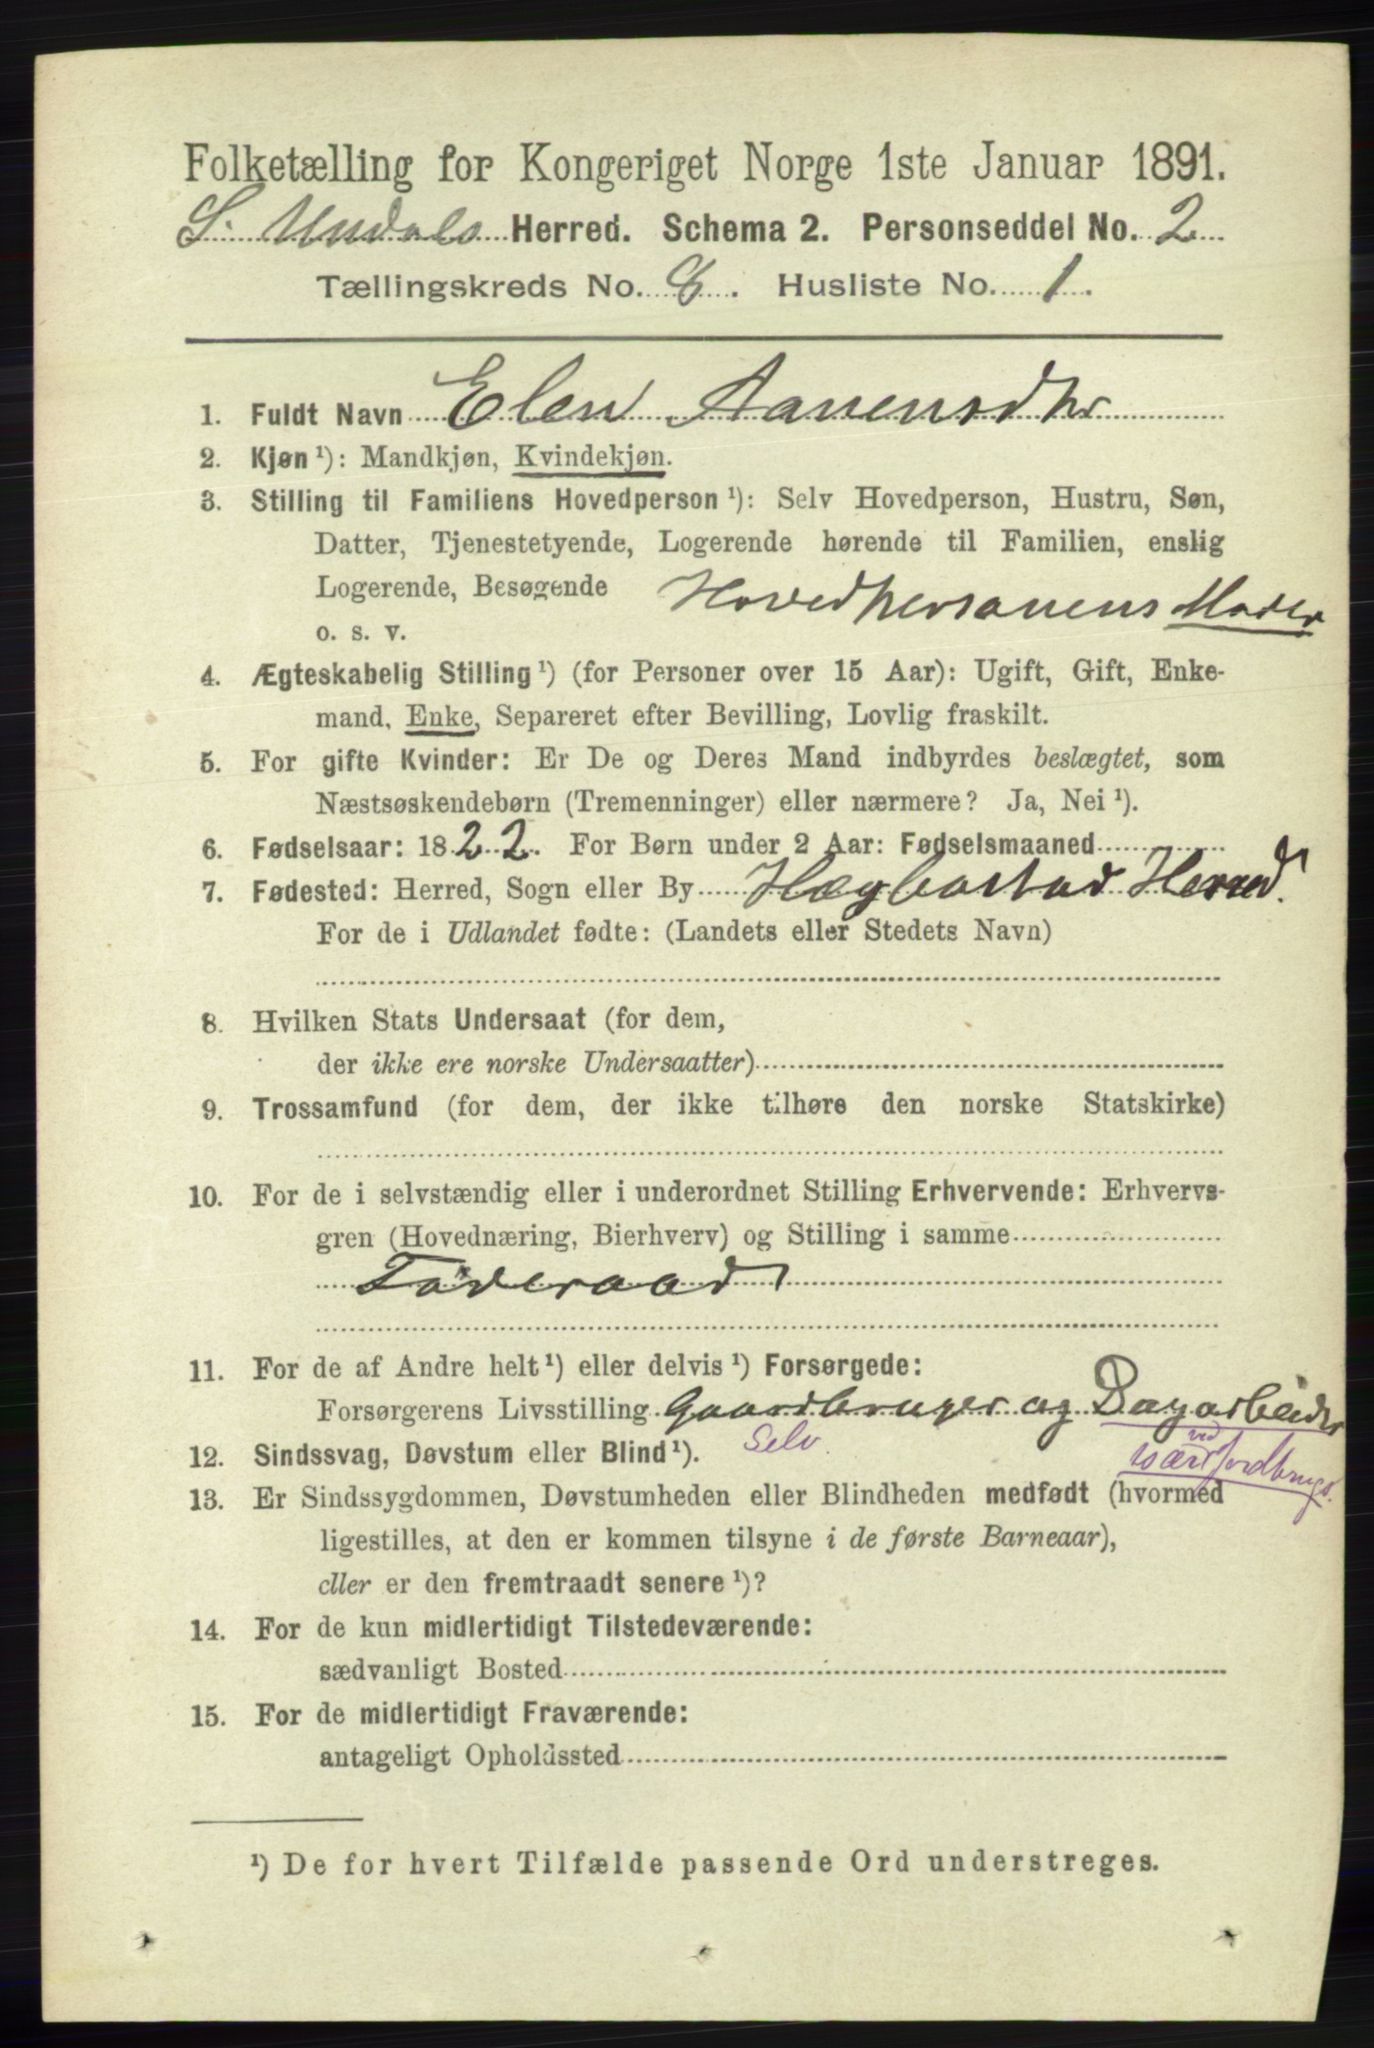 Folketælling for Kongeriget Norge 1ste Januar 1891.
S. Undals Herred. Schema 2. Personseddel No. 2
Tællingskreds No. 8. Husliste No. 1.
1. Fuldt Navn Elen Aanensdtr
2. Kjøn ¹): Mandkjøn, Kvindekjøn.
3. Stilling til Familiens Hovedperson ¹): Selv Hovedperson, Hustru, Søn,
Datter, Tjenestetyende, Logerende hørende til Familien, enslig
Logerende, Besøgende Hovedpersonens Moder
o. s. v.
4. Ægteskabelig Stilling ¹) (for Personer over 15 Aar): Ugift, Gift, Enke-
mand, Enke, Separeret efter Bevilling, Lovlig fraskilt.
5. For gifte Kvinder: Er De og Deres Mand indbyrdes beslægtet, som
Næstsøskendebørn (Tremenninger) eller nærmere? Ja, Nei ¹).
6. Fødselsaar: 1822. For Børn under 2 Aar: Fødselsmaaned
7. Fødested: Herred, Sogn eller By Hægbostad Herred.
For de i Udlandet fødte: (Landets eller Stedets Navn)
8. Hvilken Stats Undersaat (for dem,
der ikke ere norske Undersaatter)
9. Trossamfund (for dem, der ikke tilhøre den norske Statskirke)
10. For de i selvstændig eller i underordnet Stilling Erhvervende: Erhvervs-
gren (Hovednæring, Bierhverv) og Stilling i samme
Föderaad
11. For de af Andre helt ¹) eller delvis ¹) Forsørgede:
Forsørgerens Livsstilling Gaardbruger og Dagarbeider
Selv. ved
12. Sindssvag, Døvstum eller Blind ¹). jordbrugs.
13. Er Sindssygdommen, Døvstumheden eller Blindheden medfødt (hvormed
ligestilles, at den er kommen tilsyne i de første Barneaar),
eller er den fremtraadt senere ¹)?
14. For de kun midlertidigt Tilstedeværende:
sædvanligt Bosted
15. For de midlertidigt Fraværende:
antageligt Opholdssted
¹) De for hvert Tilfælde passende Ord understreges.